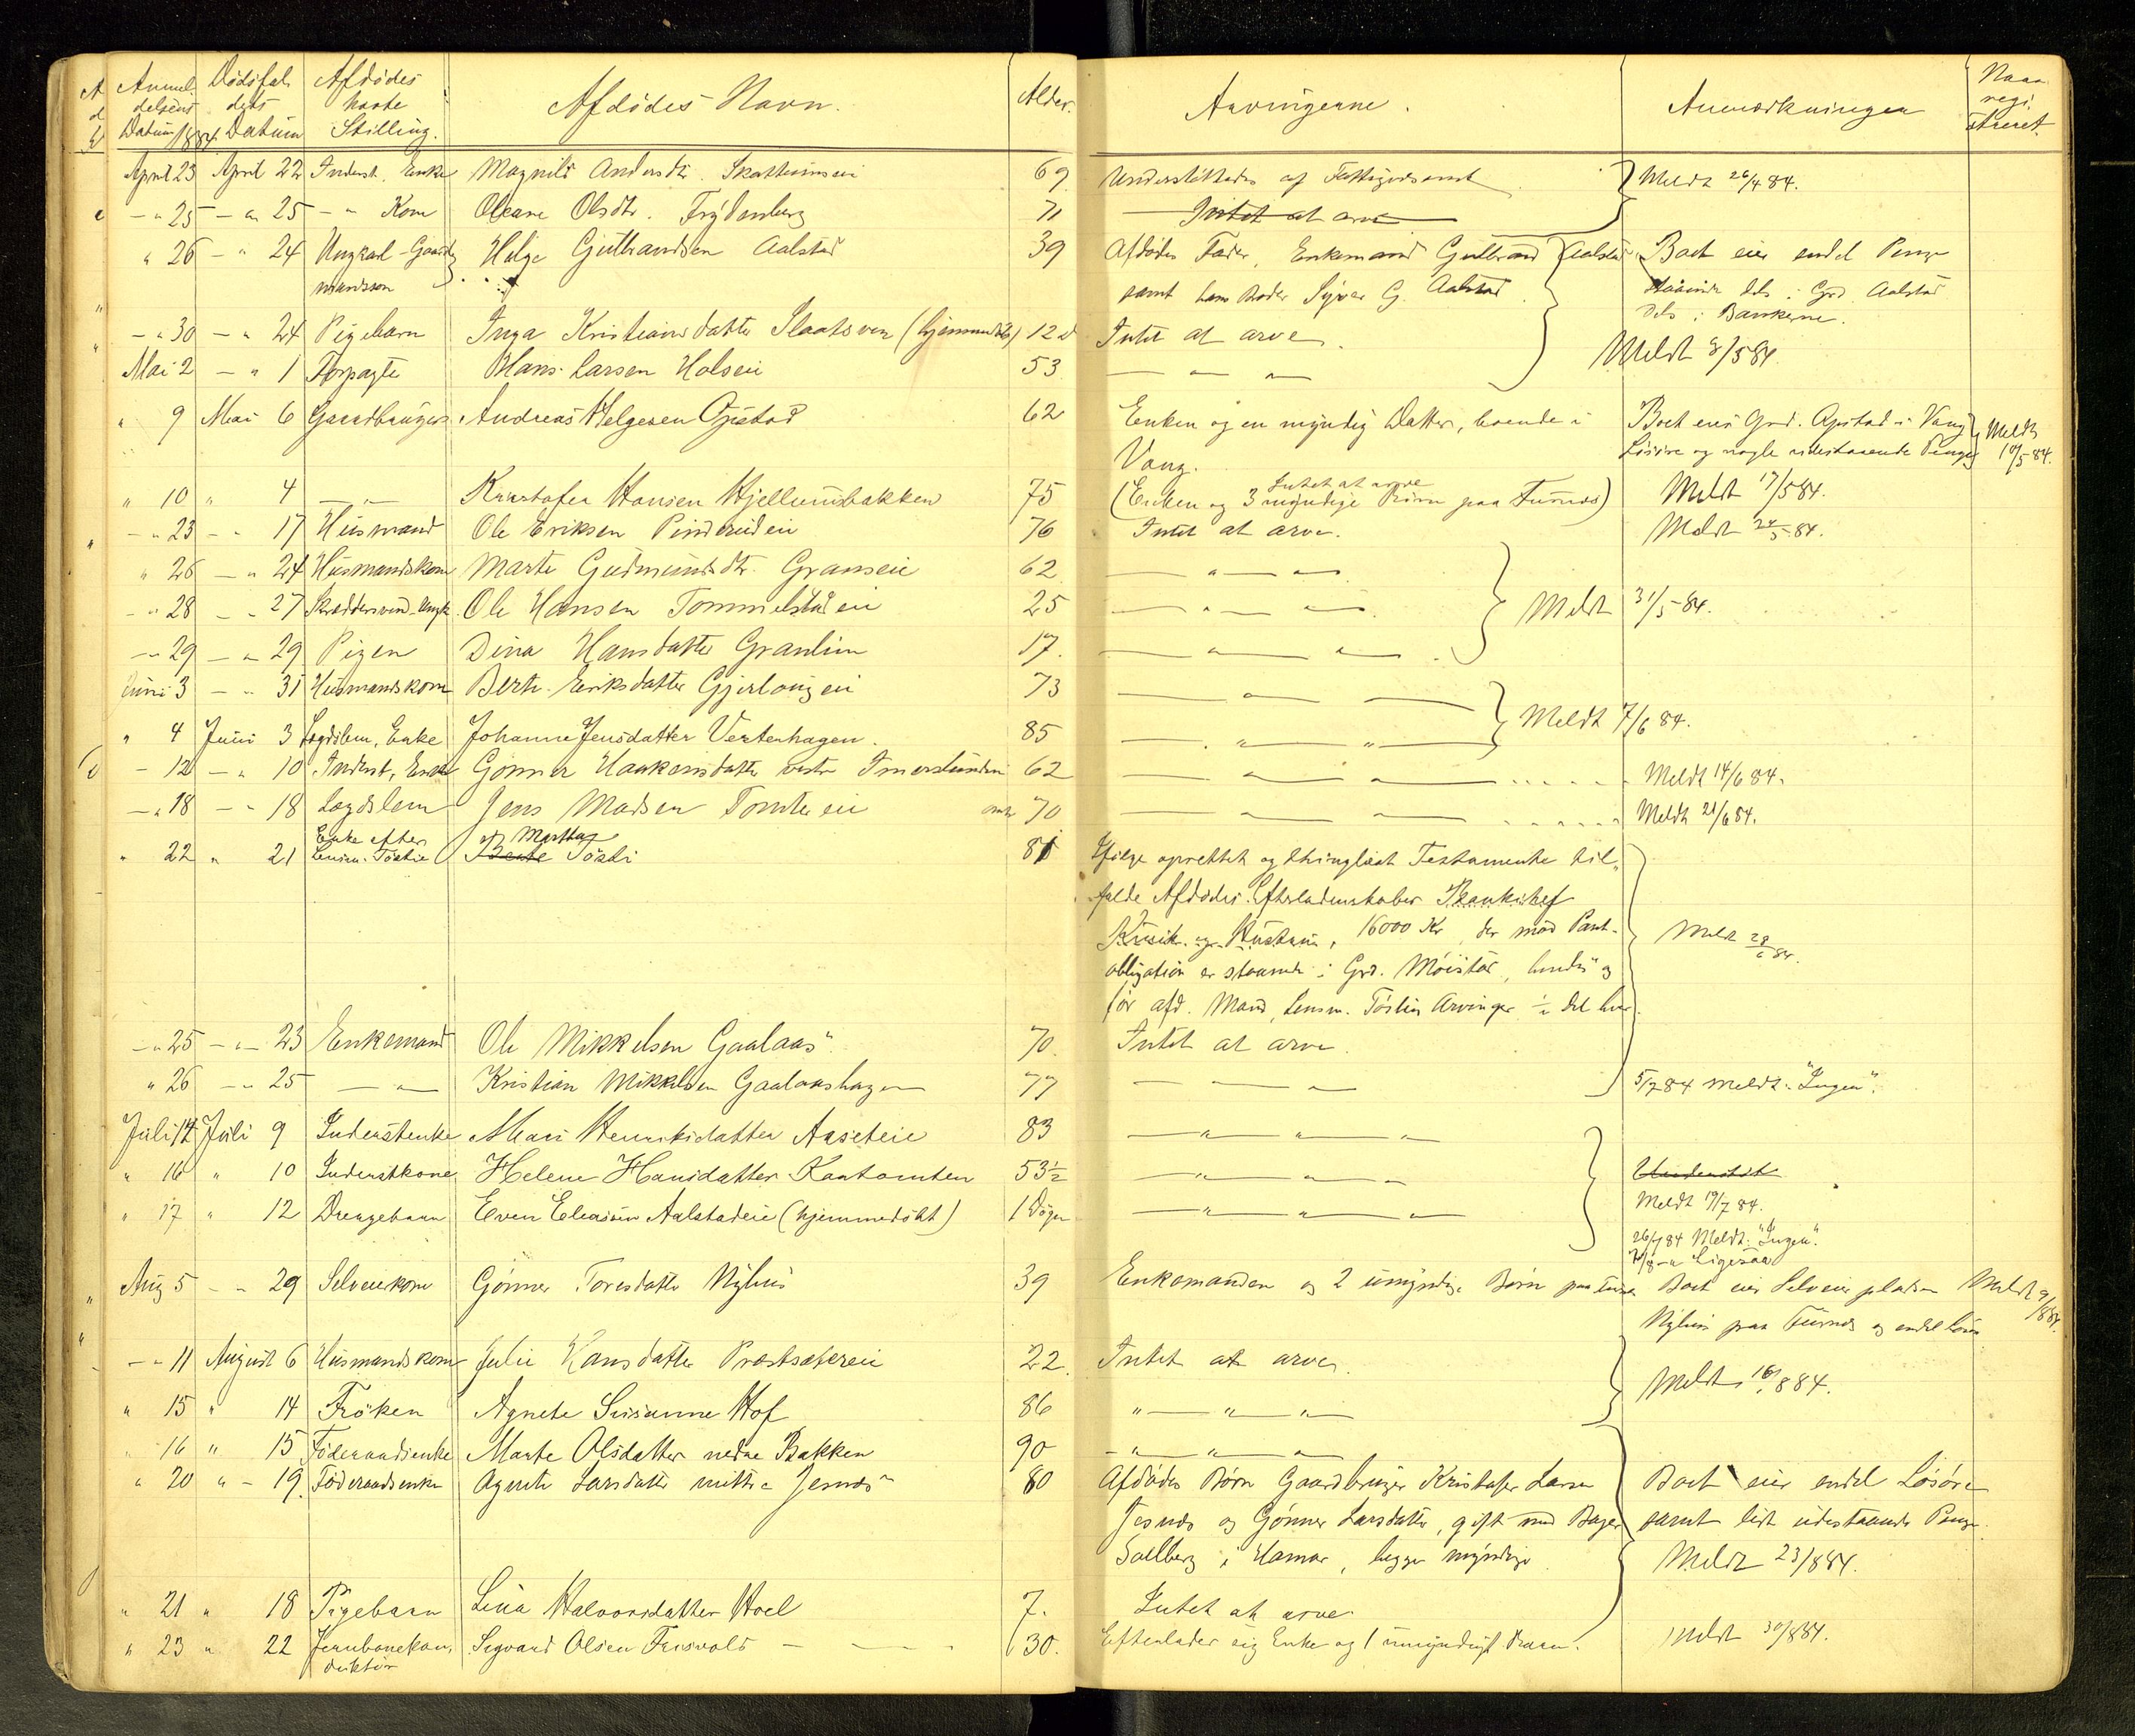 Anmeldelsens Datum 1884. Dødsfaldets Datum Afdødes Stilling. Afdødes Navn. Alder. Arvingerne. Anmærkninger
April 23 April 22 Inderst. Enke Magnild Andersdtr. 69 Understøttedes af Fattigvæsenet Meldt 26/4 84.
" 25 " 25 " Kone Oleane Olsdtr. Frydenberg 71 Intet at arve
" 26 " 24 Ungkarl-Gaardmandssøn Helge Gulbrandsen Aalstad 39 Afdødes Fader, Enkemand Gulbrand Aalstad Boet eier endel Penge
samt hans Broder Syver G. Aalstad dels i Grd. Aalstad
dels i Bankerne.
" 30 " 24 Pigebarn Inga Kristiansdatter Slaatsveen (hjemmedøbt) 12 d Intet at arve.
Mai 2 " 1 Forpagter Hans Larsen Holseie 53 " " Meldt 3/5 84.
" 9 Mai 6 Gaardbruger Andreas Helgesen Opstad 62 Enken og en myndig Datter, boende i Boet eier Grd. Opstad i Vang Meldt
Vang. Løsøre og nogle udestaaende Penge 10/5 84.
Intet at arve
" 10 " 4 " Kristofer Hansen Hjellumsbakken 75 (Enken og 3 myndige Børn paa Furnes) Meldt 17/5 84.
" 23 " 17 Husmand Ole Eriksen Pinderudeie 76 Intet at arve. Meldt 24/5 84.
" 26 " 24 Husmandskone Marte Gudmundsdtr. Granseie 62 " "
" 28 " 27 Skræddersvend Ungk. Ole Hansen Tommelstadeie 25 " " Meldt 31/5-84.
" 29 " 29 Pigen Dina Hansdatter Granlien 17. " "
Juni 3 " 31 Husmandskone Berte Eriksdatter Gjerlougeie 73 " "
" 4 Juni 3 Lægdslem, Enke Johanne Jensdatter Vestenhagen. 85 " " Meldt 7/6 84.
" 12 " 10 Inderst, Enke Gønner Haakensdatter vestre Imerslundeie 62 Meldt 14/6 84.
" 18 " 18 Lægdslem Jens Madsen Tomtereie 70 Meldt 21/6 84.
Enke efter Marthe
" 22 " 21 Lensm. Tøstie Beate Tøsti 81 Ifølge oprettet og thinglæst Testamente til-
falde Afdødes Efterladenskaber
16000 Kr, der mod Pant-
obligation er staaende i Grd. Møistad, hendes og Meldt 28/6 84.
før afd. Mand, Lensm. Tøsties Arvinger ½ del hver.
" 25 " 23 Enkemand Ole Mikkelsen Gaalaas 70. Intet at arve
" 26 " 25 " Kristian Mikkelsen Gaalaashagen 77 " " 5/7 84 Meldt: "Ingen".
Juli 14 Juli 9 Inderstenke Mari Henriksdatter Aaseteie 83 " " "
" 16 " 10 Inderstkone Helene Hansdatter Kaatomten 53½ " " "
Meldt 19/7 84.
" 17 " 12 Drengebarn Even Eliasen Aalstadeie (hjemmedøbt) 1 Døgn " " "
26/7 84 Meldt: "Ingen".
2/8 " Ligesaa
Aug 5 " 29 Selveierkone Gønner Toresdatter Nyhus 39 Enkemanden og 2 umyndige Børn paa Furnes Boet eier Selveierpladsen Meldt 9/8 84.
Nyhus paa Furnes og endel Løsøre
" 11 August 6 Husmandskone Julie Hansdatter Præstsætereie 22. Intet at arve. Meldt 16/8 84.
" 15 " 14 Frøken Agnete Susanne Hof 86 " " "
" 16 " 15 Føderaadsenke Marte Olsdatter nedre Bakken 90 " " "
" 20 " 19. Føderaadsenke Agnete Larsdatter mittre Jesnes 80 Afdødes Børn Gaardbruger Kristofer Larsen Boet eier endel Løsøre
Jesnes og Gønner Larsdatter, gift med Bager samt lidt udestaaende Penge
Solberg i Hamar, begge myndige Meldt 23/8 84.
" 21 " 18 Pigebarn Lina Halvorsdatter Hoel 7. Intet at arve.
" 23 " 22 Jernbanekonduktør Segvard Olsen Frisvold 30. Efterlader sig Enke og 1 umyndigt Barn. Meldt 30/8 84.